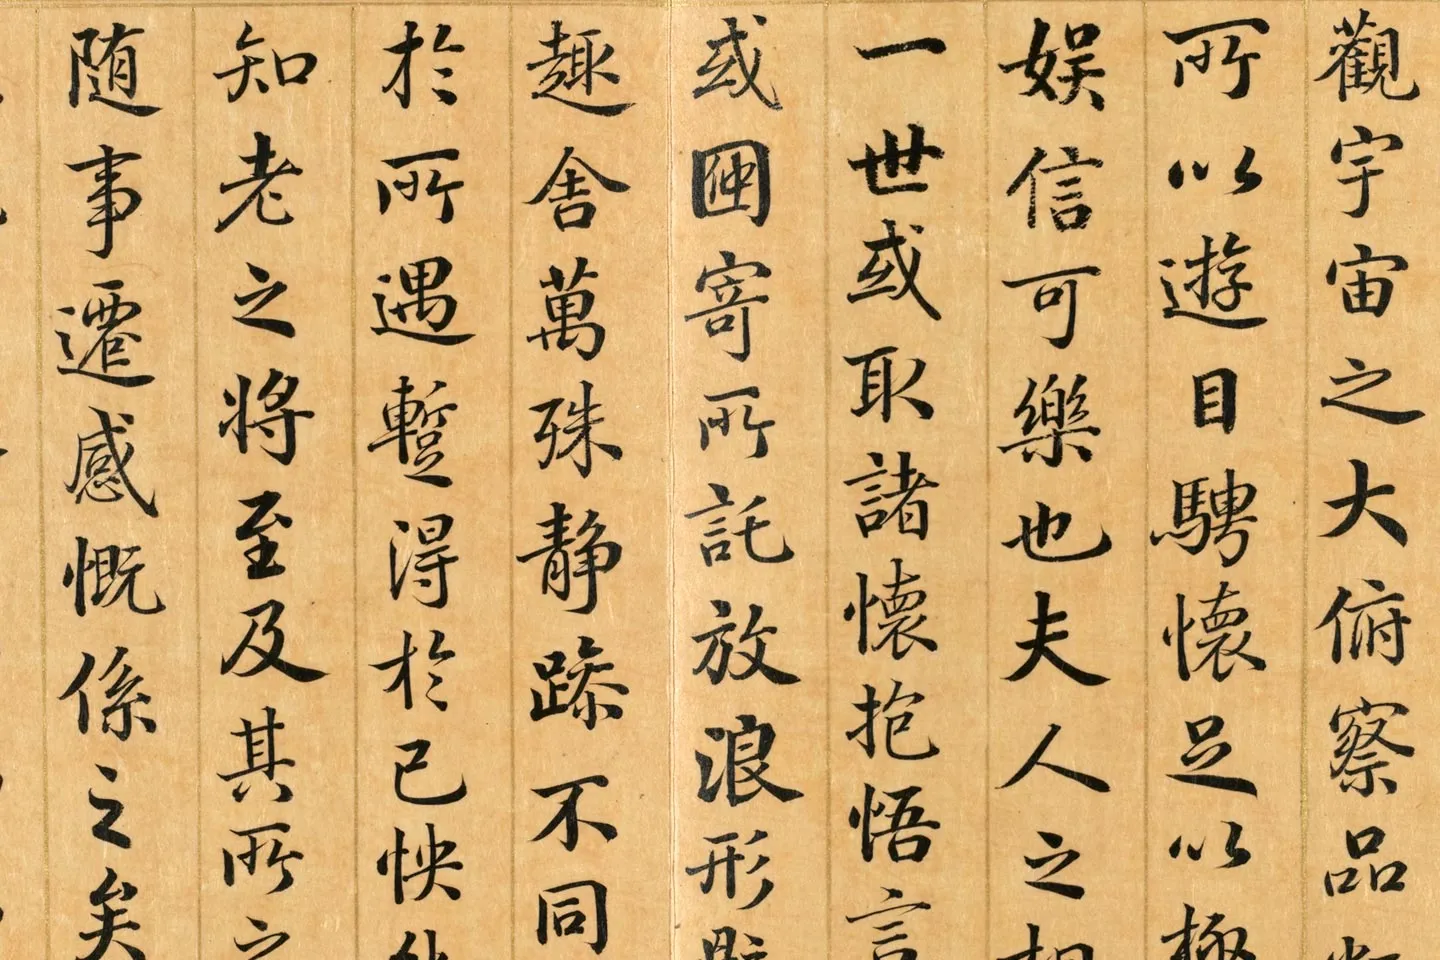 觀宇宙之大俯察品類
所以遊目騁懷足以極
娛信可樂也夫人之相
一世或取諸懷抱悟言
或因寄所託放浪形骸
趣舍萬殊静躁不同
於所遇暫得於己怏然
知老之將至及其所之
随事遷感慨係之矣